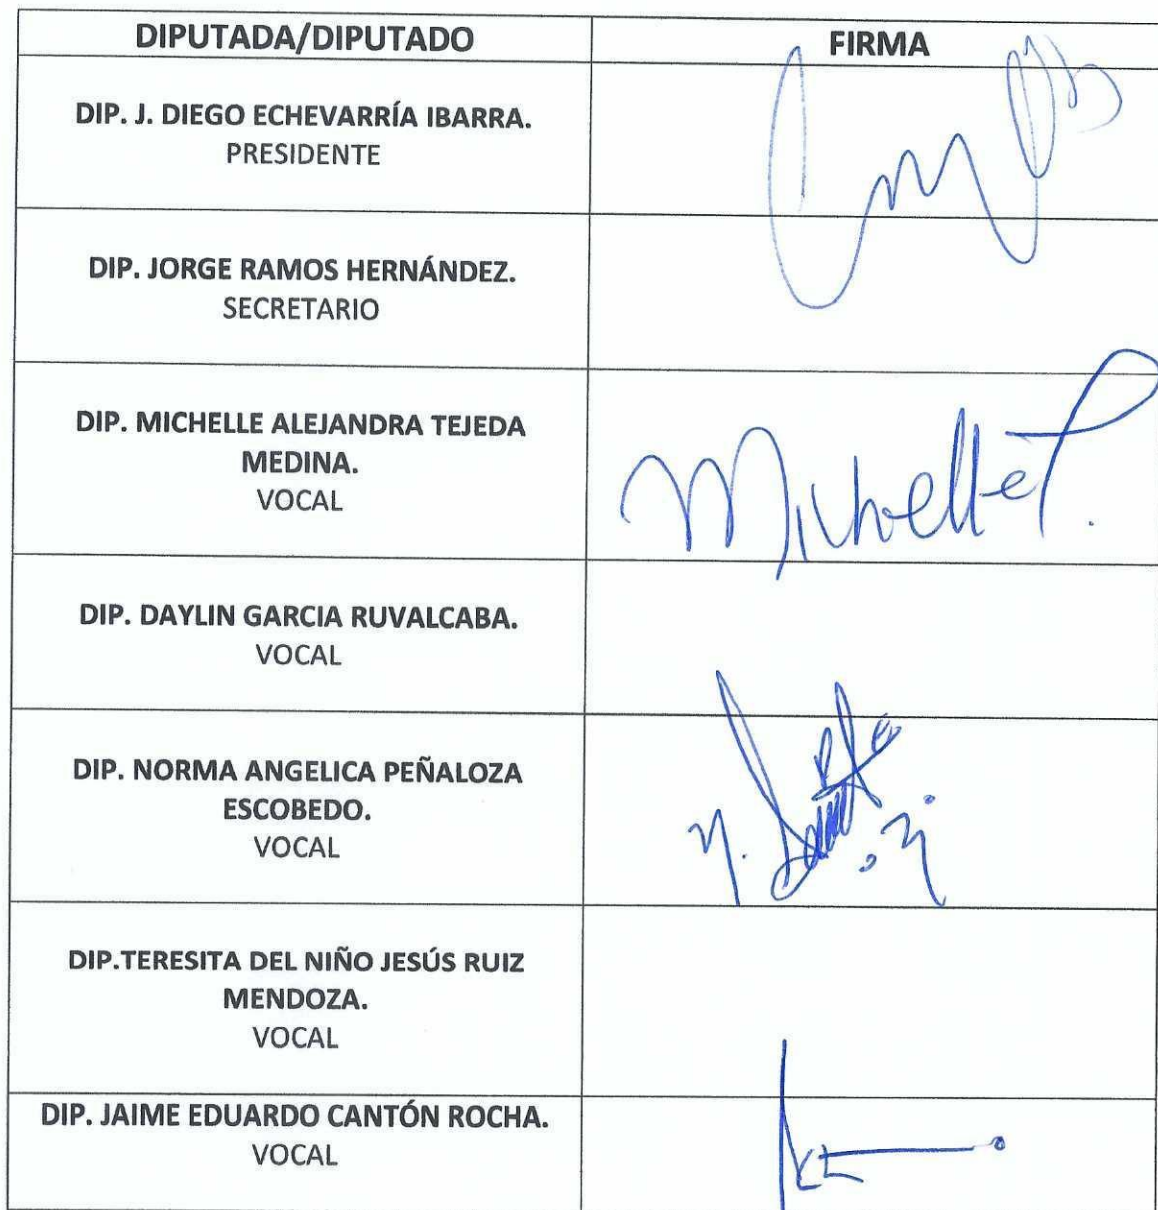 DIPUTADA/DIPUTADO FIRMA
DIP. J. DIEGO ECHEVARRÍA IBARRA.
PRESIDENTE
DIP. JORGE RAMOS HERNÁNDEZ.
SECRETARIO
DIP. MICHELLE ALEJANDRA TEJEDA
MEDINA.
VOCAL
Michelle T.
DIP. DAYLIN GARCIA RUVALCABA.
VOCAL
DIP. NORMA ANGELICA PEÑALOZA
ESCOBEDO.
VOCAL
DIP.TERESITA DEL NIÑO JESÚS RUIZ
MENDOZA.
VOCAL
DIP. JAIME EDUARDO CANTÓN ROCHA.
VOCAL